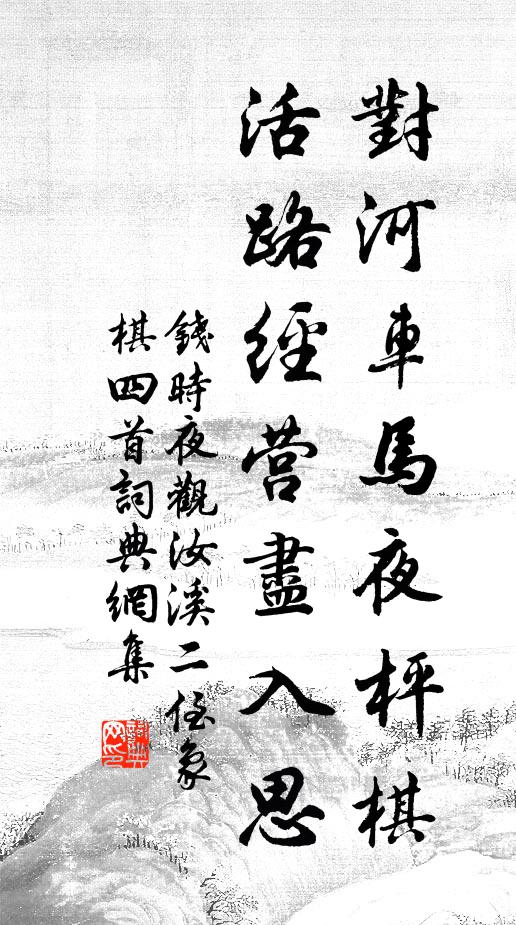 對河車馬夜枰棋
活路經营盡入思
錢時夜觀汝溪二侄象
棋四首詞典網集